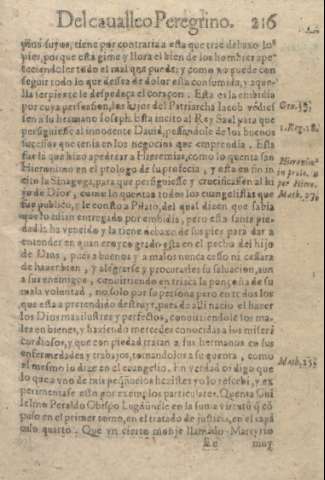 Del cauallero Peregrino. 216
ynos suyos, tiene por contraria a esta que trae debaxo los
pies, por que esta gime y llora el bien de los hombres ape-
teciendole todo el mal que puede: y como no puede con
seguir todo lo que dessea de dolor esta consumida, y aque-
lla serpiente le despedaça el coraçon. Esta es la embidia
por cuya persuasion, los hijos del Patriarcha Iacob vendie-
ron a su hermano Ioseph. Esta incito al Rey Saul para que
persiguiesse al innocente Dauid, pessandole de los buenos
successos que tenia en los negocios que emprendia. Esta
fue la que hizo apedrear a Hieremias, como lo quenta san
Hieronimo en el prologo de su profecia, y esta en fin in
cito la Sinagoga, para que persiguiesse y crucificassen al hi
jo de Dios, como lo quentan todos los euangelistas que
fue publico, y le consto a Pilato, del qual dizen que sabia
que lo auian entregado por embidia, pero esta sancta pie-
dad la ha vencido y la tiene debaxo de sus pies para dar a
entender en quan eroyco grado esta en el pecho del hijo
de Dios, pues a buenos y a malos nunca cesso ni cessara
de hazer bien, y alegrarse y procurarles su saluacion, aun
a sus enemigos, conuirtiendo en triaca la ponçoña de su
mala voluntad, no solo por su persona pero entre dos los
que esta a pretendido destruyr, pues de alli nacio el hazer
los Dios mas ilustres y perfectos, conuirtiendole los ma-
les en bienes, y haziendo mercedes conocidas a los miseri
cordiosos, y que con piedad tratan a sus hermanos en sus
enfermedades y trabajos, tomandolos a su quenta, como
el mesmo lo dize en el euangelio. En verdad os digo que
lo que a vno de mis pequeñuelos hezistes yo lo rescebi, y ex
perimentase esto por exemplos particulares. Quenta Gui
lelmo Peraldo Obispo Lugdunēse en la suma virtutū q̄ cō
puso en el primer tomo, en el tratado de justicia, en el capi
tulo quarto. Que vn cierto monje llamado Martyrio
Ee muy
Gen. 37.
1. Reg. 18.
Hieronim⁹
in prolo.
per Hiere.
Math. 27.
Math. 25.